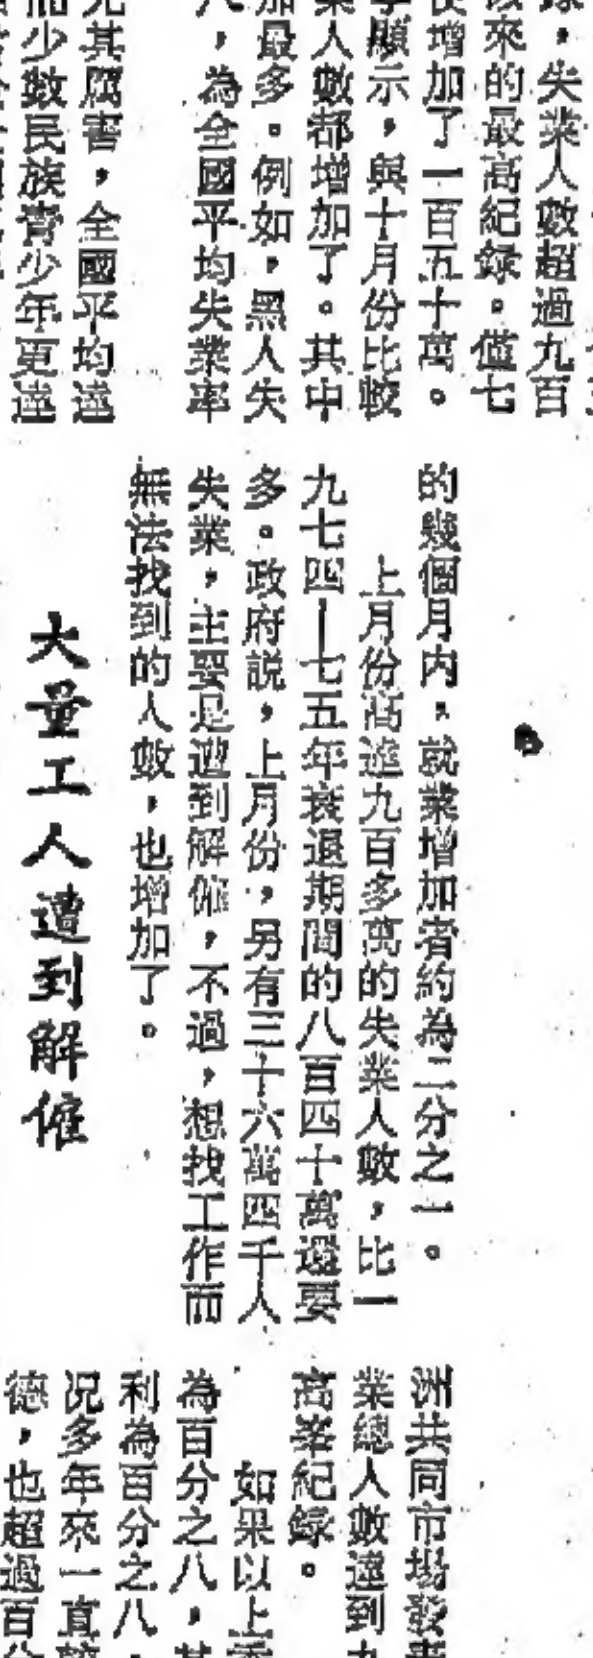 錄，失業人數超過九百
來的最高紀錄。僅七
增加了一百五十萬。
顯示，與十月份比較
業人數都增加了。其中
加最多。例如，黑人失
八，為全國平均失業率
尤其厲害，全國平均達
而少數民族青少年更達
的幾個月內，就業增加者約為二分之一。
上月份高達九百多萬的失業人數，比一
九七四—七五年衰退期間的八百四十萬還要
多。政府説，上月份，另有三十六萬四千人
失業，主要是遭到解僱，不過，想找工作而
無法找到的人數，也增加了。
大量工人遭到解僱
洲共同市場發表
業總人數達到九
高峯紀錄。
如果以上
為百分之八，其
利為百分之八，
况多年來一直較
德，也超過百分